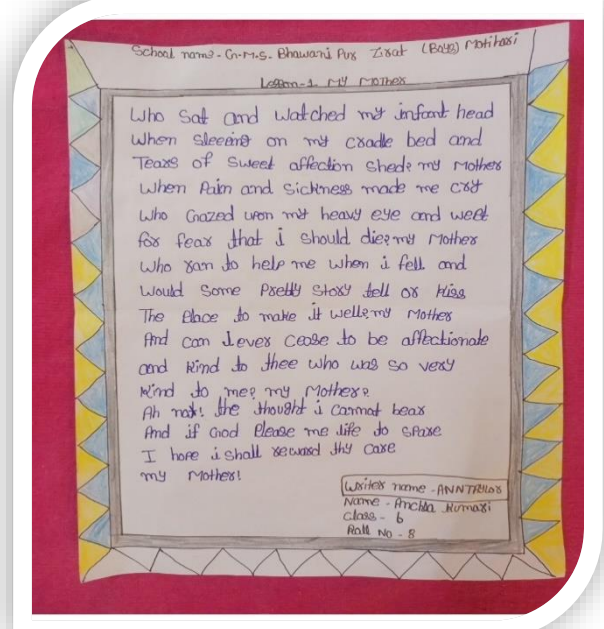 School name - G.M.S. Bhawani Pur Zirat (Boys) Motihari
Lesson-1 MY MOTHER
Who Sat and Watched my infant head
When Sleeping on my cradle bed and
Tears of Sweet affection Shed? my Mother
When Pain and Sickness made me cry
Who Gazed upon my heavy eye and weet
for fear that i should die? my Mother
Who ran to help me when i fell and
Would Some Pretty Story tell or Kiss
The Place to make it well? my Mother
And can I ever cease to be affectionate
and Kind to thee who was so very
Kind to me? my Mother?
Ah nay! the thought i cannot bear
And if God Please me life to Spare
I hope i shall reward thy Care
my Mother!
Writer name - ANNTAYLOR
Name - Anchla Kumari
Class - 6
Roll No - 8